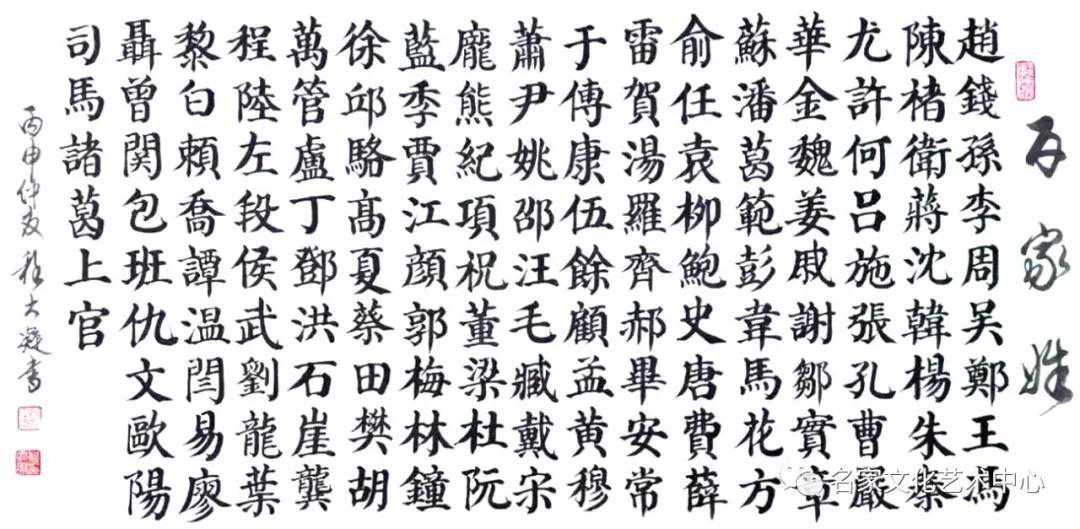 百家姓
趙錢孫李周吳鄭王馮
陳楮衛蔣沈韓楊朱秦
尤許何呂施張孔曹嚴
華金魏姜戚謝鄒實章
蘇潘葛範彭韋馬花方
俞任袁柳鮑史唐費薛
雷賀湯羅齊郝畢安常
于傅康伍餘顧孟黄穆
蕭尹姚邵汪毛臧戴宋
龐熊紀項祝董梁杜阮
藍季賈江顔郭梅林鐘
徐邱駱髙夏蔡田樊胡
萬管盧丁鄧洪石崖龔
程陸左段侯武劉龍葉
黎白頼喬譚温閆易廖
聶曾関包班仇文歐陽
司馬諸葛上官
丙申仲夏 大凝書
名家文化艺术中心